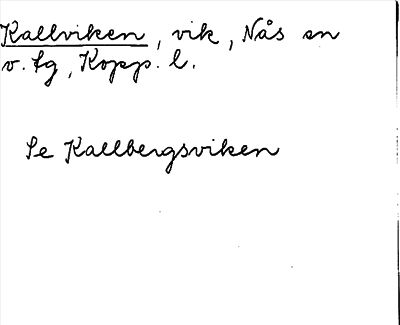 Kallviken, vik, Nås sn
v. fg, Kopp. l.
Se Kallbergsviken